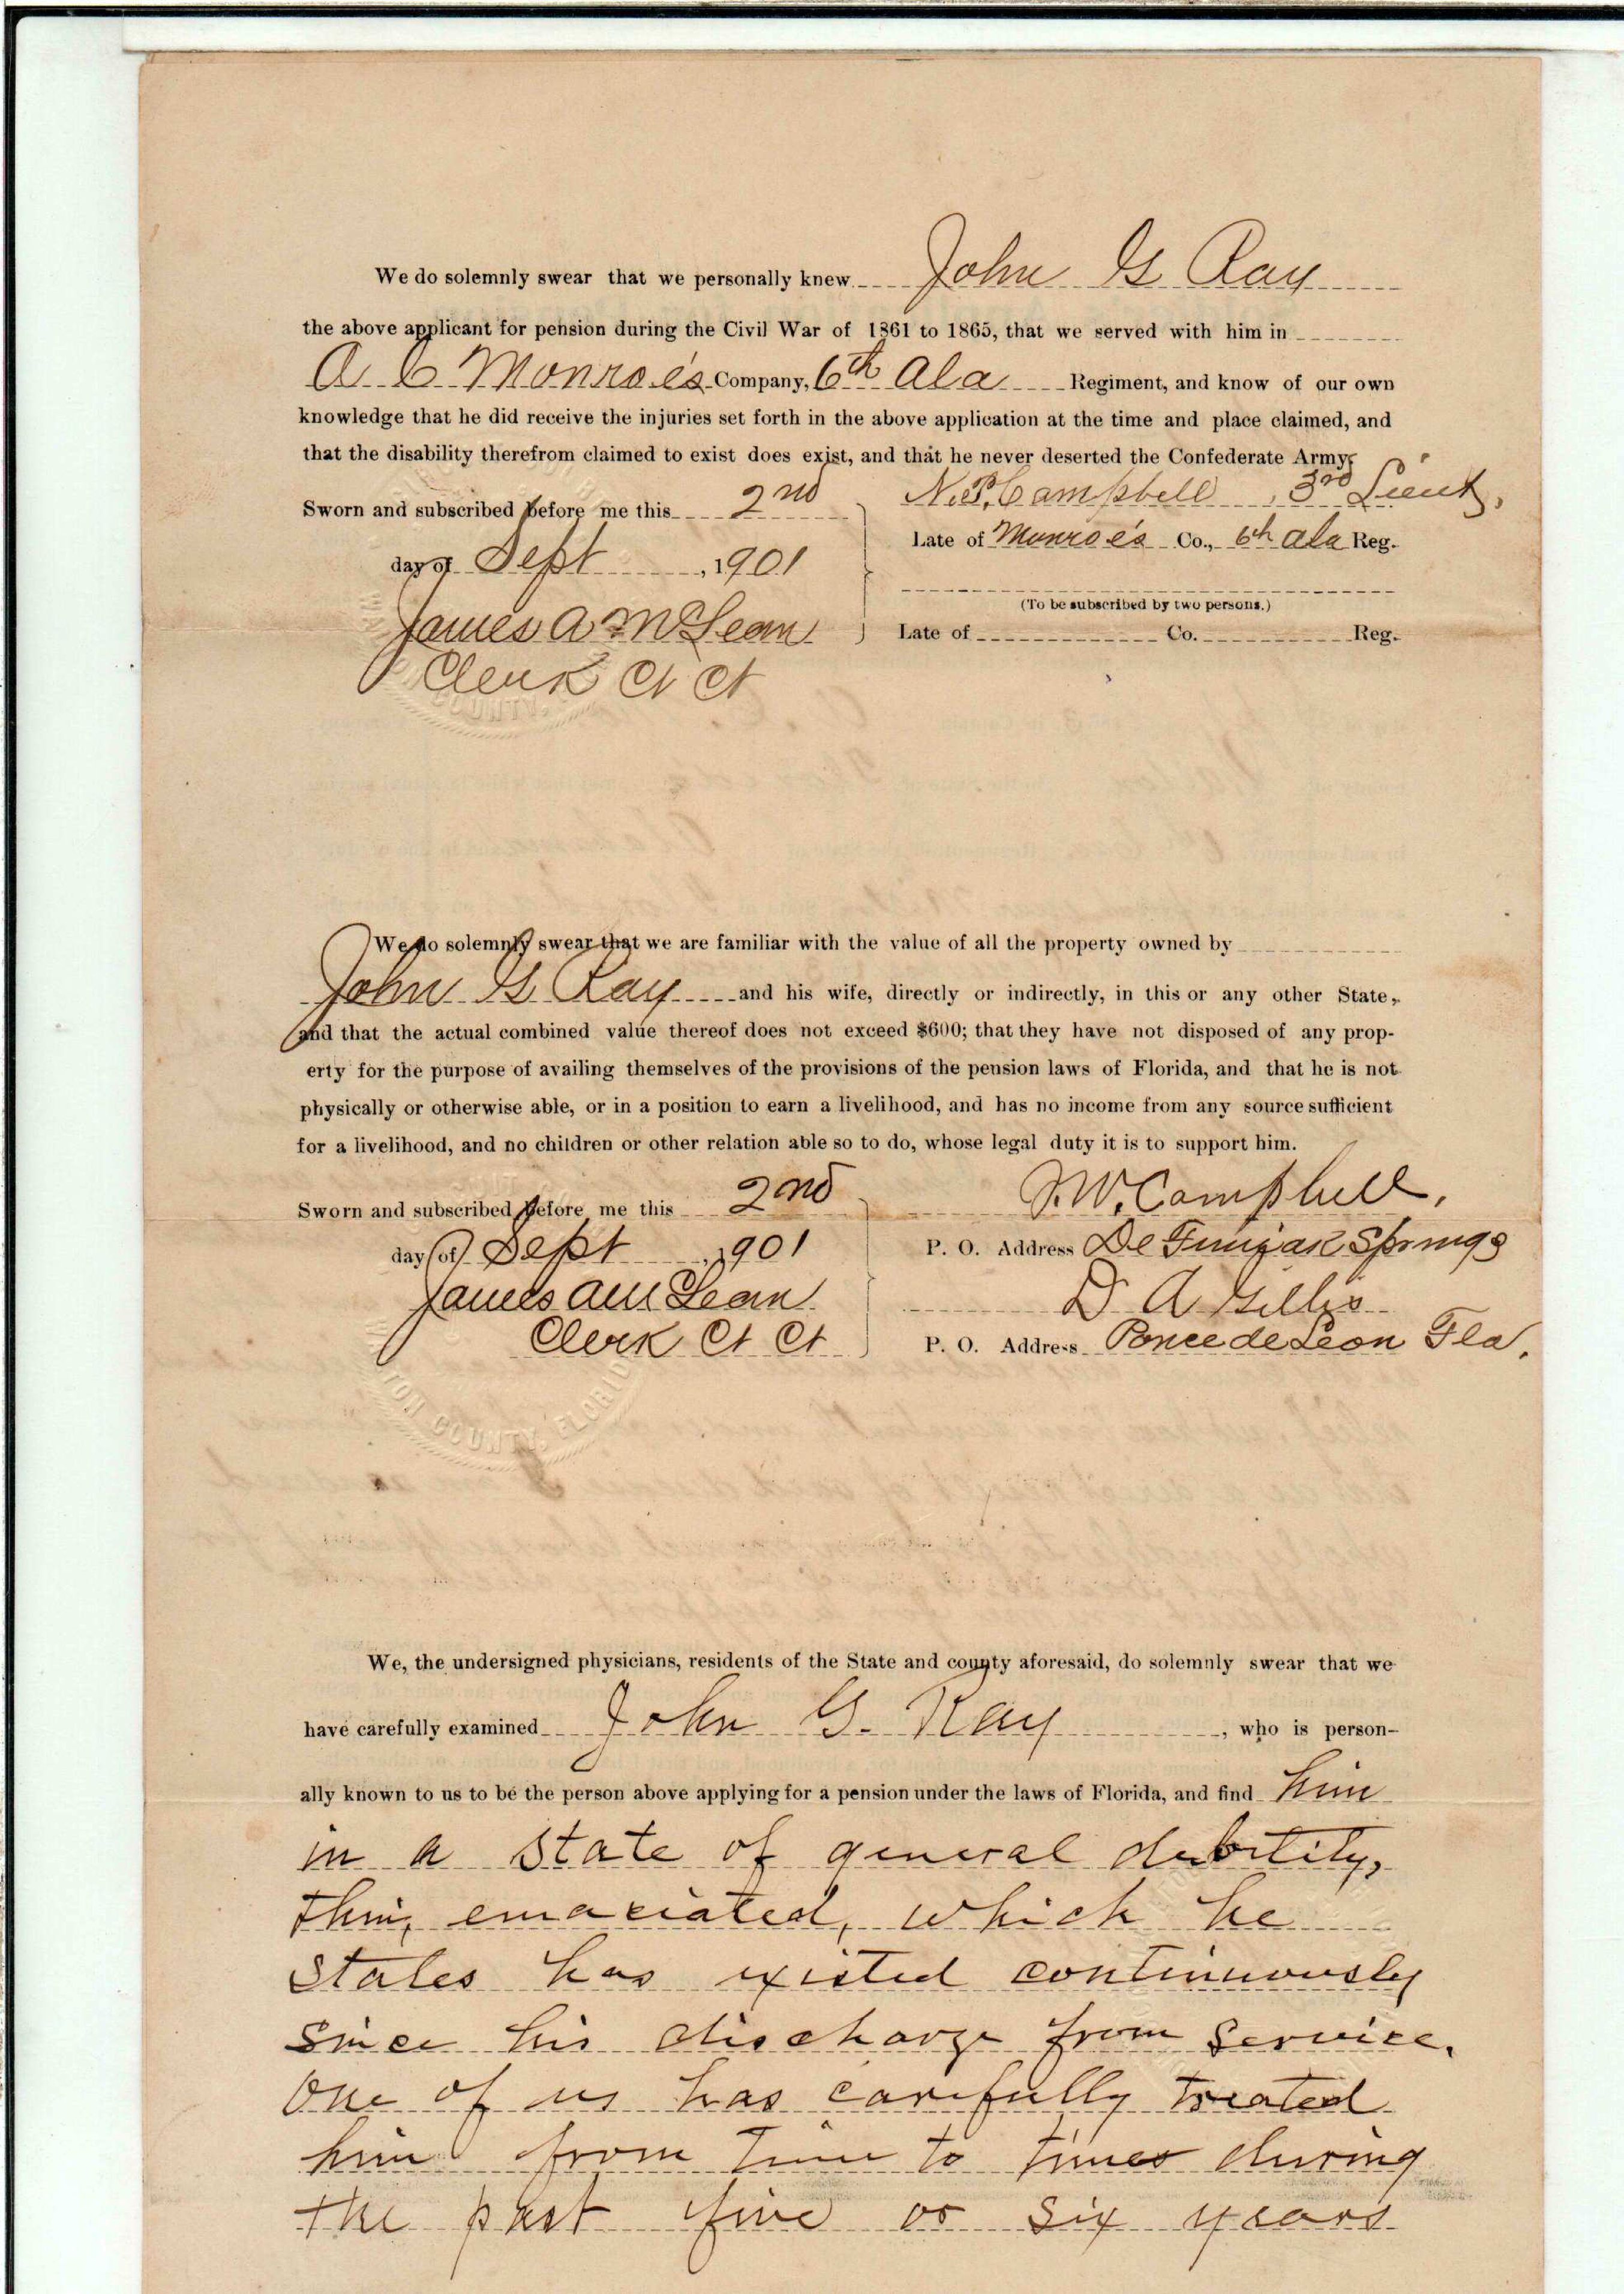 We do solemnly swear that we personally knew John G Ray
the above applicant for pension during the Civil War of 1861 to 1865, that we served with him in
A C Monroe's Company, 6th Ala Regiment, and know of our own
knowledge that he did receive the injuries set forth in the above application at the time and place claimed, and
that the disability therefrom claimed to exist does exist, and that he never deserted the Confederate Army.
Sworn and subscribed before me this 2nd
day of Sept, 1901
James A McLean
Clerk Ct Ct
N.P. Campbell, 3rd Lieut,
Late of Monroe's Co., 6th Ala Reg.
(To be subscribed by two persons.)
Late of Co. Reg.
COUNTY
We do solemnly swear that we are familiar with the value of all the property owned by
John G Ray and his wife, directly or indirectly, in this or any other State,
and that the actual combined value thereof does not exceed $600; that they have not disposed of any prop-
erty for the purpose of availing themselves of the provisions of the pension laws of Florida, and that he is not
physically or otherwise able, or in a position to earn a livelihood, and has no income from any source sufficient
for a livelihood, and no children or other relation able so to do, whose legal duty it is to support him.
Sworn and subscribed before me this 2nd
day of Sept, 1901
James A McLean
Clerk Ct Ct
W. Campbell,
P. O. Address De Funiak Springs
D A Gillis
P. O. Address Ponce de Leon Fla.
TON COUNTY, FLORID
We, the undersigned physicians, residents of the State and county aforesaid, do solemnly swear that we
have carefully examined John G. Ray, who is person-
ally known to us to be the person above applying for a pension under the laws of Florida, and find him
in a state of general debility,
thin, emaciated, which he
states has existed continuously
since his discharge from service.
One of us has carefully treated
him from time to times during
the past five or six years